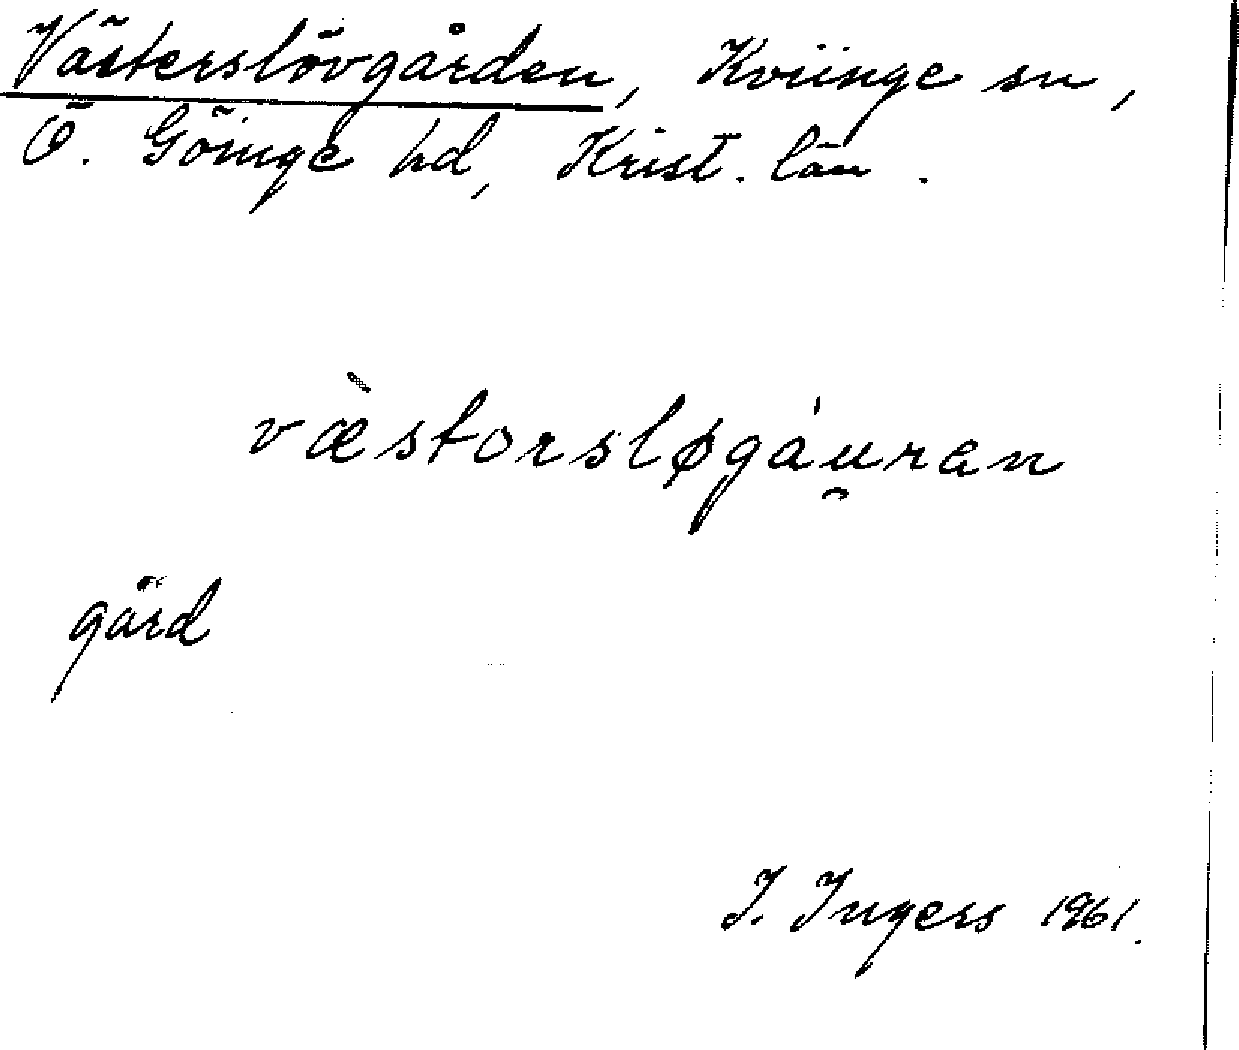 Västerslövgården, Kviinge sn,
Ö. Göinge hd, Krist. län.
væ̀storsløgáu̯ran
gård
I. Ingers 1961.